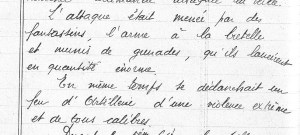 L'attaque était menée par des
fantassins, l'arme à la bretelle
et munis de grenades, qu'ils lancèrent
en quantité énorme.
En même temps se déclanchait un
feu d'Artillerie d'une violence extrême
et de tous calibres.